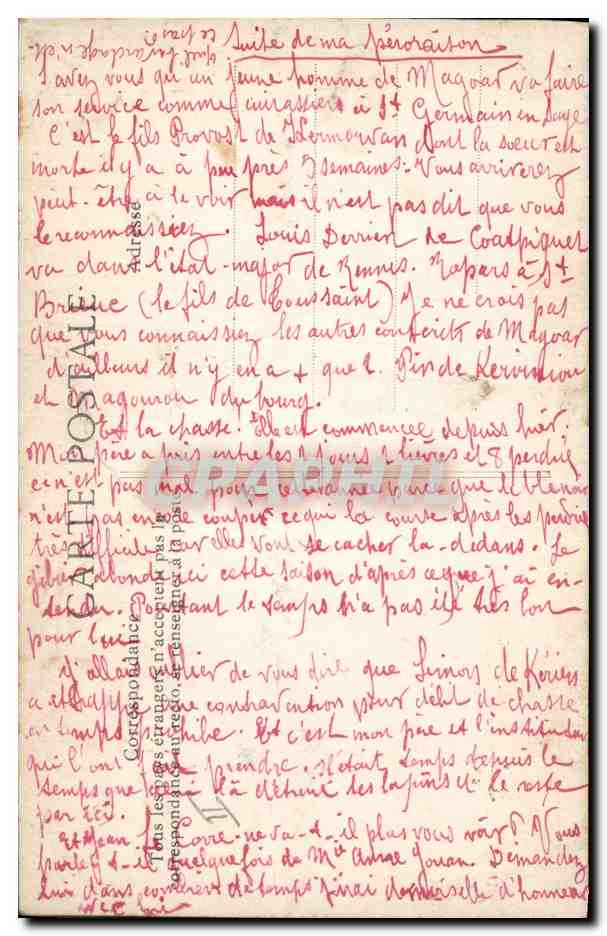 Suite de ma péroraison
Savez vous qu'un jeune homme de Magoar va faire
son service comme cuirassier à St Germain en Laye
C'est le fils Provost de Kermorvan dont la sœur est
morte il y a à peu près 3 semaines. Vous arriverez
peut-être à le voir mais il n'est pas dit que vous
le reconnaissiez. Louis Derrien de Coatpiquet
va dans l'état-major de Rennes. Ropars à St
Brieuc (le fils de Toussaint) Je ne crois pas
que vous connaissiez les autres conscrits de Magoar
d'ailleurs il n'y en a + que 2. de
et du bourg.
Et la chasse. Elle est commencée depuis hier.
Mon père a pris entre les 2 jours 2 lièvres et 8 perdrix
ce n'est pas mal pour le parce que le blé noir
n'est pas encore coupé ce qui la course après les perdrix
très difficile car elles vont se cacher là-dedans. Le
gibier abonde ici cette saison d'après ce que j'ai en-
tendu. Pourtant le temps n'a pas été très bon
pour lui
J'allais oublier de vous dire que de Kerien
a attrappé une contravention pour délit de chasse
en temps prohibé. Et c'est mon père et l'instituteur
qui l'ont fait prendre. C'était temps depuis le
temps que là détruit des lapins et le reste
par ici.
Et Jean Le Corre ne va-t-il plus vous voir? Vous
parle-t-il quelquefois de Mlle Anne Jouan Demandez
lui dans combien de temps j'irai demoiselle d'honneur
avec lui
CARTE POSTALE
Correspondance
Adresse
Tous les pays étrangers n'acceptent pas la
correspondance au recto, se renseigner à la poste
CPAPHIL